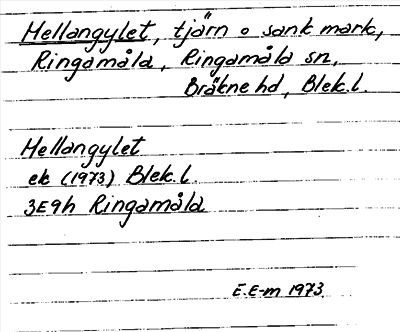 Hellangylet, tjärn o sank mark,
Ringamåla, Ringamåla sn,
Bräkne hd, Blek.l.
Hellangylet
ek (1973) Blek.l.
3E9h Ringamåla
E.E-m 1973.